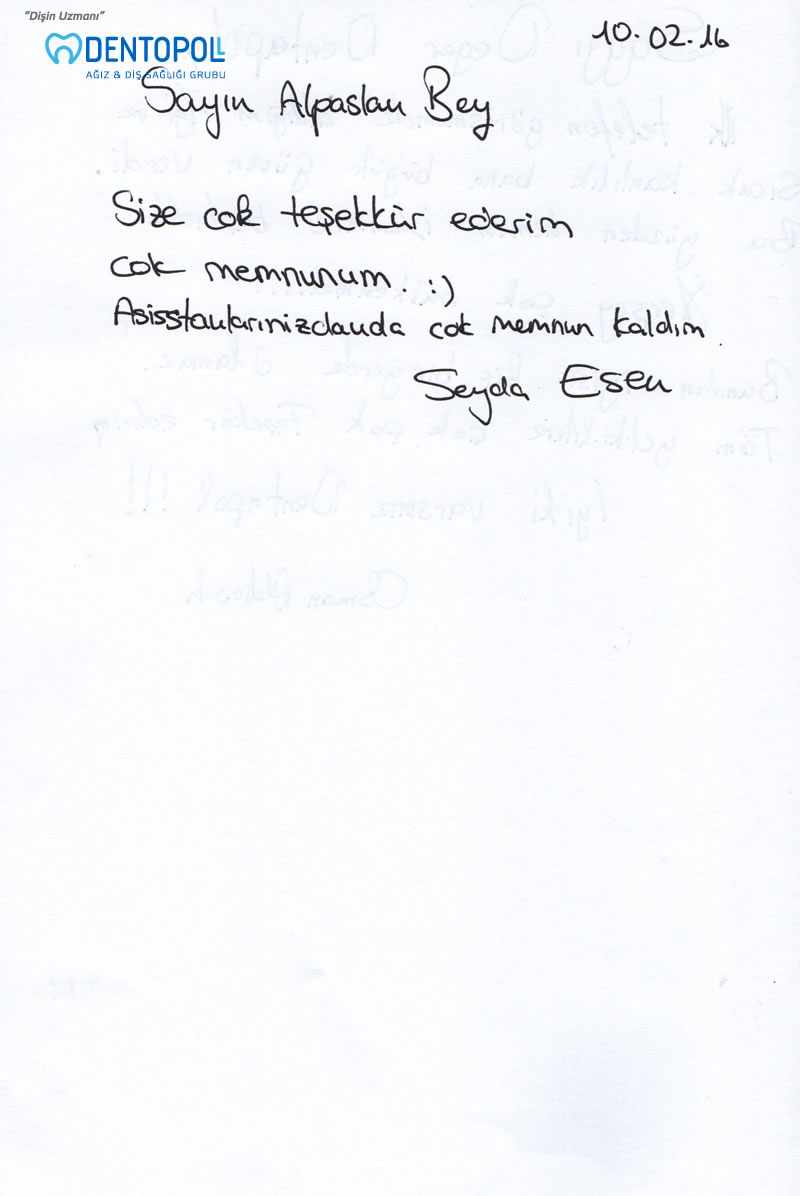 "Dişin Uzmanı"
DENTOPOLL
AĞIZ & DİŞ SAĞLIĞI GRUBU
10.02.16
Sayın Alpaslan Bey
Size cok teşekkür ederim
cok memnunum. :)
Asisstanlarınızdanda cok memnun kaldım.
Seyda Esen